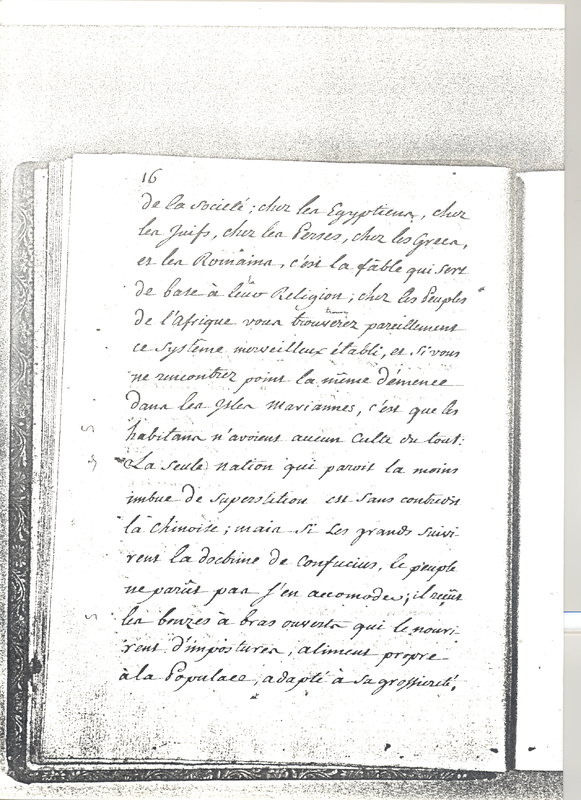 16
de la Societé; chez les Egyptiens, chez
les Juifs, chez les Perses, chez les Grecs,
et les Romains, c'est la fable qui sert
de base à leur Religion; chez les Peuples
de l'Afrique vous trouverez pareillement
ce Système merveilleux établi, et si vous
ne rencontrez point la même démence
dans les Isles Mariannes, c'est que les
habitans n'avoient aucun Culte du tout.
La seule nation qui paroit la moins
imbue de superstition est sans contredit
la Chinoise; mais si les grands suivi
rent la doctrine de Confucius, le peuple
ne parût pas s'en accomoder; il reçût
les bonzes à bras ouverts qui le nouri
rent d'impostures, aliment propre
à la Populace, adapté à sa grossiereté.